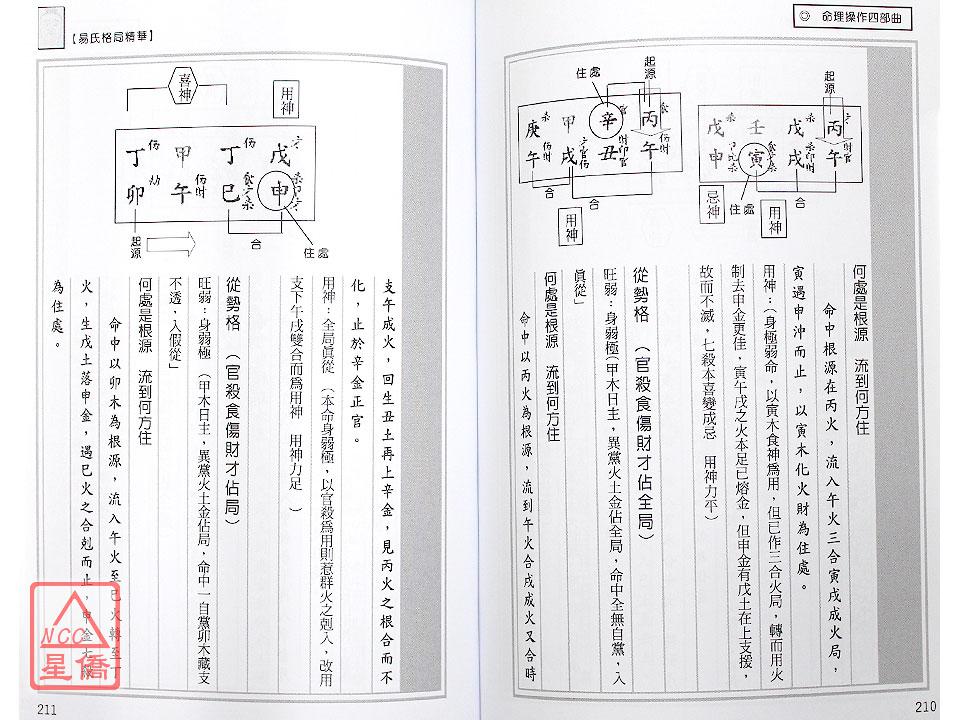 ◎ 命理操作四部曲
起源
丙 戊 壬 戊
午 戌 寅 申
合
住處
用神
忌神
何處是根源 流到何方住
命中根源在丙火，流入午火三合寅戌成火局，
寅遇申沖而止，以寅木化火財為住處。
用神：（身極弱命，以寅木食神爲用，但已作三合火局，轉而用火
制去申金更佳，寅午戌之火本足已熔金，但申金有戊土在上支援，
故而不滅，七殺本喜變成忌 用神力平）
起源
住處
丙 辛 甲 庚
午 丑 戌 午
合
合
用神
從勢格 （官殺食傷財才佔全局）
旺弱：身弱極（甲木日主，異黨火土金佔全局，命中全無自黨，入
眞從」
何處是根源 流到何方住
命中以丙火為根源，流到午火合戌成火又合時
210
【易氏格局精華】
支午成火，回生丑土再上辛金，見丙火之根合而不
化，止於辛金正官。
用神：全局眞從（本命身弱極，以官殺爲用則惹群火之剋入，改用
支下午戌雙合而爲用神 用神力足 ）
用神
喜神
戊 丁 甲 丁
申 巳 午 卯
合
住處
起源
從勢格 （官殺食傷財才佔局）
旺弱：身弱極（甲木日主，異黨火土金佔局，命中一自黨卯木藏支
不透，入假從」
何處是根源 流到何方住
命中以卯木為根源，流入午火至巳火轉至丁
火，生戊土落申金，遇巳火之合剋而止，申金七殺
為住處。
211
NCC
星僑